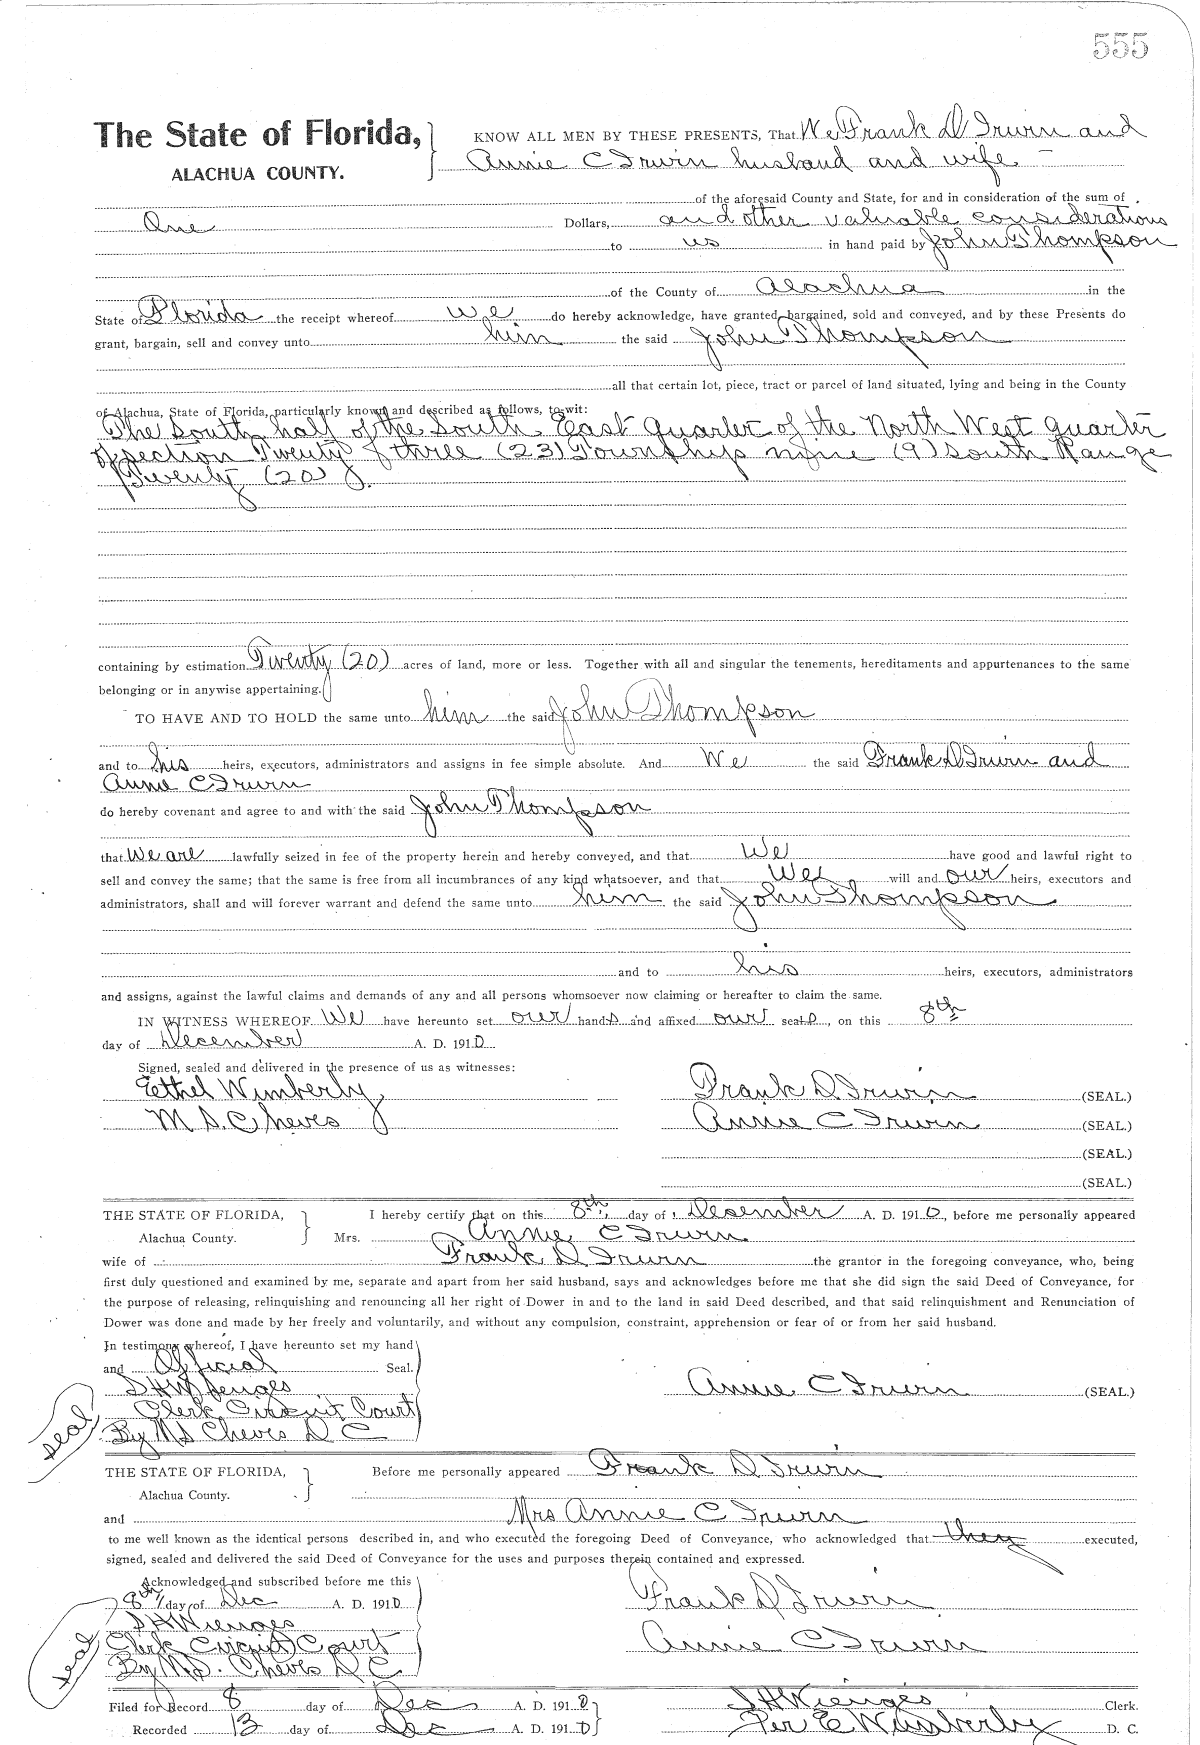 555
The State of Florida, KNOW ALL MEN BY THESE PRESENTS, That We Frank D Irwin and
ALACHUA COUNTY. Annie C Irwin husband and wife
of the aforesaid County and State, for and in consideration of the sum of
One Dollars, and other valuable considerations
to us in hand paid by John Thompson
of the County of Alachua in the
State of Florida the receipt whereof we do hereby acknowledge, have granted, bargained, sold and conveyed, and by these Presents do
grant, bargain, sell and convey unto him the said John Thompson
all that certain lot, piece, tract or parcel of land situated, lying and being in the County
of Alachua, State of Florida, particularly known and described as follows, to-wit:
The South half of the South East Quarter of the North West Quarter
of section Twenty three (23) Township nine (9) South Range
Twenty (20)
containing by estimation Twenty (20) acres of land, more or less. Together with all and singular the tenements, hereditaments and appurtenances to the same
belonging or in anywise appertaining.
TO HAVE AND TO HOLD the same unto him the said John Thompson
and to his heirs, executors, administrators and assigns in fee simple absolute. And We the said Frank D Irwin and
Annie C Irwin
do hereby covenant and agree to and with the said John Thompson
that We are lawfully seized in fee of the property herein and hereby conveyed, and that We have good and lawful right to
sell and convey the same; that the same is free from all incumbrances of any kind whatsoever, and that We will and our heirs, executors and
administrators, shall and will forever warrant and defend the same unto him the said John Thompson
and to his heirs, executors, administrators
and assigns, against the lawful claims and demands of any and all persons whomsoever now claiming or hereafter to claim the same.
IN WITNESS WHEREOF We have hereunto set our hands and affixed our seals, on this 8th
day of December A. D. 1910
Signed, sealed and delivered in the presence of us as witnesses:
Ethel Wimberly Frank D Irwin (SEAL.)
M S. Cheves Annie C Irwin (SEAL.)
(SEAL.)
(SEAL.)
THE STATE OF FLORIDA, I hereby certify that on this 8th, day of December A. D. 1910, before me personally appeared
Alachua County. Mrs. Annie C Irwin
wife of Frank D Irwin the grantor in the foregoing conveyance, who, being
first duly questioned and examined by me, separate and apart from her said husband, says and acknowledges before me that she did sign the said Deed of Conveyance, for
the purpose of releasing, relinquishing and renouncing all her right of Dower in and to the land in said Deed described, and that said relinquishment and Renunciation of
Dower was done and made by her freely and voluntarily, and without any compulsion, constraint, apprehension or fear of or from her said husband.
In testimony whereof, I have hereunto set my hand
and Official Seal.
S H Wienges Annie C Irwin (SEAL.)
Clerk Circuit Court
seal By M S Cheves D C
THE STATE OF FLORIDA, Before me personally appeared Frank D Irwin
Alachua County.
and Mrs Annie C Irwin
to me well known as the identical persons described in, and who executed the foregoing Deed of Conveyance, who acknowledged that they executed,
signed, sealed and delivered the said Deed of Conveyance for the uses and purposes therein contained and expressed.
Acknowledged and subscribed before me this
8th day of Dec A. D. 1910 Frank D Irwin
S H Wienges
seal Clerk Circuit Court Annie C Irwin
By M S. Cheves D C
Filed for Record 8 day of Dec A. D. 1910 S H Wienges Clerk.
Recorded 13 day of Dec A. D. 1910 Per E Wimberly D. C.